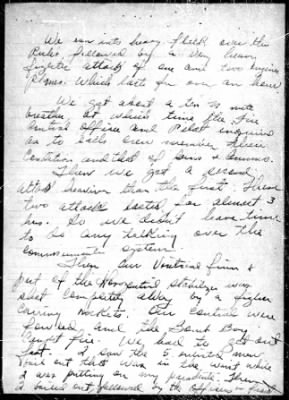 We ran into heavy Flack over the
Ruhr, followed by a very heavy
fighter attack of one and two engine
planes. Which lasts for over an hour
We got about a ten minute
breather, at which time the Fire
Control Officer and Pilot inquired
as to each crew member their
Condition and that of guns & ammo.
Then we got a second
attack heavier than the first. These
two attack lasted for almost 3
hrs. So we didn't have time
to do any talking over the
communicate system.
Then Our Vertical finn &
part of the Horizontal stabilizer was
shot completely away by a fighter
carring Rockets. Our Control were
and the Bomb Bay
Caught fire. We had to get out
fast. I saw the 5 enlisted men
bail out that was in the waist while
I was putting on my parachute. Then
I bailed out, followed by the Officers